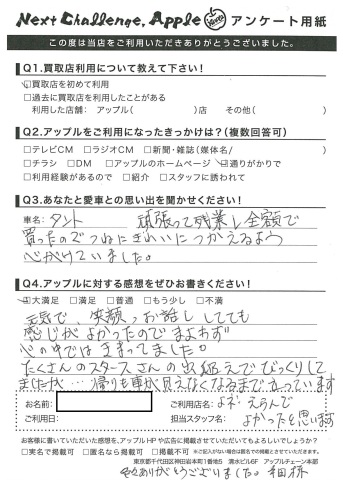 Next Challenge, Apple アンケート用紙
この度は当店をご利用いただきありがとうございました。
Q1.買取店利用について教えて下さい！
☑買取店を初めて利用
□過去に買取店を利用したことがある
利用した店舗： アップル(　　　)店　その他(　　　)
Q2.アップルをご利用になったきっかけは？(複数回答可)
□テレビCM □ラジオCM □新聞・雑誌(媒体名/　　　)
□チラシ □DM □アップルのホームページ ☑通りがかりで
□利用経験があるので □紹介 □スタッフに誘われて
Q3.あなたと愛車との思い出を聞かせください！
車名： タント 頑張って残業し全額で
買ったのでつねにきれいにつかえるよう
心がけていました。
Q4.アップルに対する感想をぜひお書きください！
☑大満足 □満足 □普通 □もう少し □不満
元気で、笑顔、お話し してても
感じがよかったのでまよわず
心の中ではきまってました。
たくさんのスタースさんの出迎えでびっくりして
ましたが… 帰りも車が見えなくなるまで なっています
お名前： ご利用店名： よネ えらんで
ご利用日： 担当スタッフ名： よかったと思います
お客様に書いていただいた感想を、アップルHPや広告に掲載させていただいてもよろしいでしょうか？
□実名で掲載可 □匿名で掲載可 □掲載不可 ※ご記入がない場合は匿名での掲載とさせていただきます。
東京都千代田区神田岩本町1番地5 清水ビル6F アップルチェーン本部
ありがとうございました。